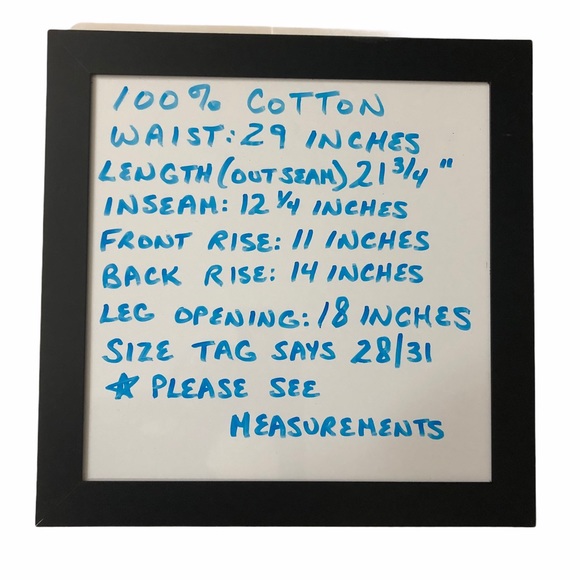 100% COTTON
WAIST: 29 INCHES
LENGTH (OUTSEAM) 21 3/4 "
INSEAM: 12 1/4 INCHES
FRONT RISE: 11 INCHES
BACK RISE: 14 INCHES
LEG OPENING: 18 INCHES
SIZE TAG SAYS 28/31
☆ PLEASE SEE
MEASUREMENTS